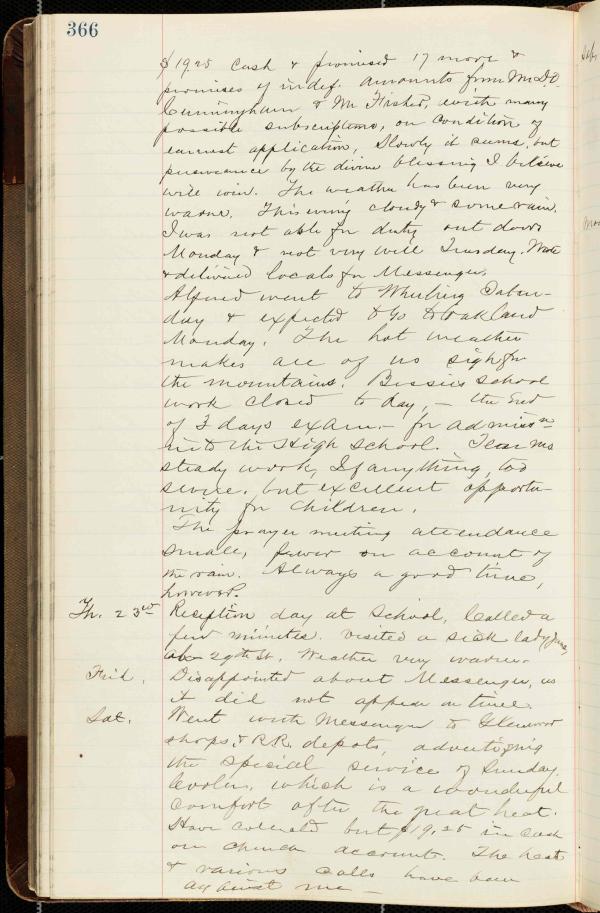 366
$19.25 cash & promised 17 more &
promises of indef. amounts from Mr D.O.
Cunningham & Mr Fisher, with many
possible subscriptions, on condition of
earnest application, Slowly it seems, but
perseverance by the divine blessing I believe
will win. The weather has been very
warm. This evening cloudy & some rain.
I was not able for duty out doors
Monday & not very well Tuesday. Wrote
& delivered locals for Messenger.
Alfred went to Wheeling Satur-
day & expected to go to Oakland
Monday. The hot weather
makes all of us sigh for
the mountains. Bessie's school
work closed to day, – the End
of 3 days exam. – for admissn
into the High School. Ten ms
steady work, If anything, too
severe, but excellent opportu-
nity for children.
The prayer meeting attendance
small, fewer on account of
the rain. Always a good time,
however.
Th. 23rd Reception day at School, Called a
few minutes. Visited a sick lady
29th St. Weather very warm.
Frid. Disappointed about Messenger, as
it did not appear on time.
Sat. Went with Messenger to Glenwood
shops, & R.R. depots, advertising
the special service of Sunday.
Cooler, which is a wonderful
comfort after the great heat.
Have collected but $19.25 in cash
on church account. The heat
& various calls have been
against me –